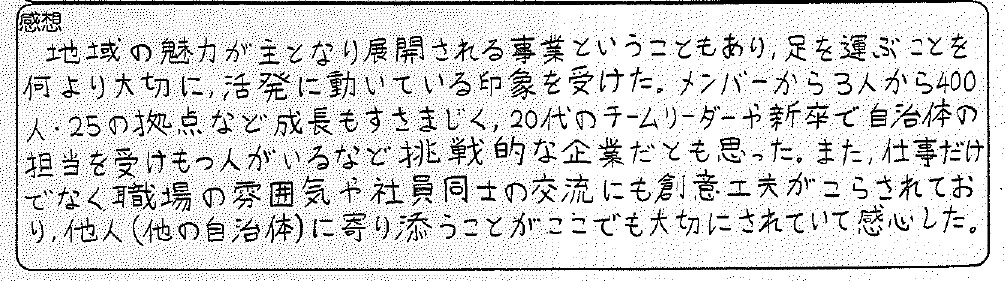 感想
地域の魅力が主となり展開される事業ということもあり,足を運ぶことを
何より大切に,活発に動いている印象を受けた。メンバーから3人から400
人・25の拠点など成長もすさまじく,20代のチームリーダーや新卒で自治体の
担当を受けもつ人がいるなど挑戦的な企業だとも思った。また,仕事だけ
でなく職場の雰囲気や社員同士の交流にも創意工夫がこらされてお
り,他人(他の自治体)に寄り添うことがここでも大切にされていて感心した。